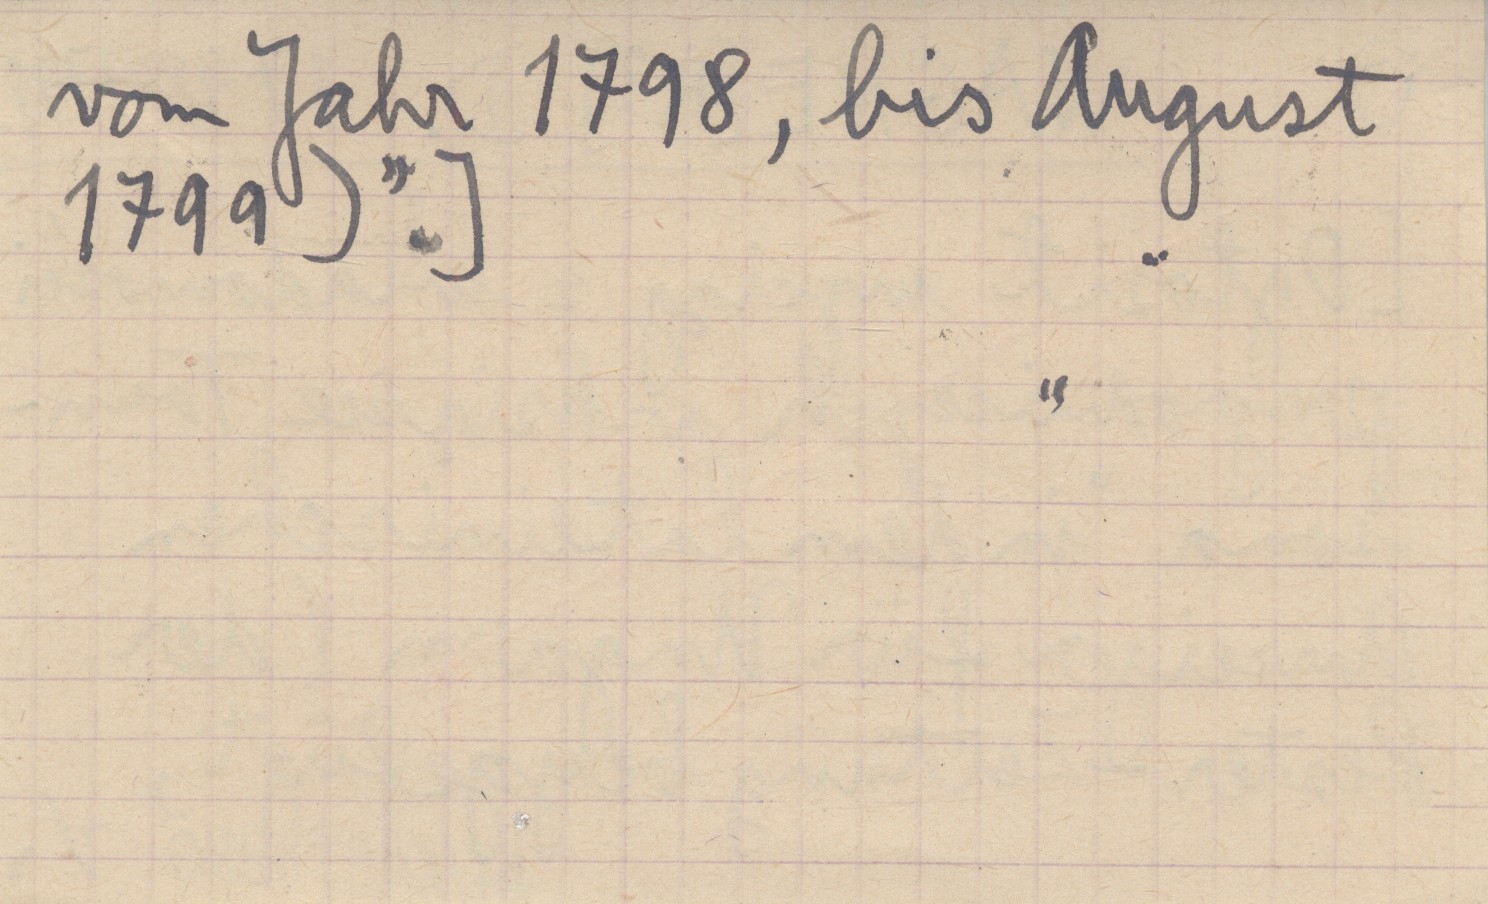 vom Jahr 1798, bis August
1799)”.]
„